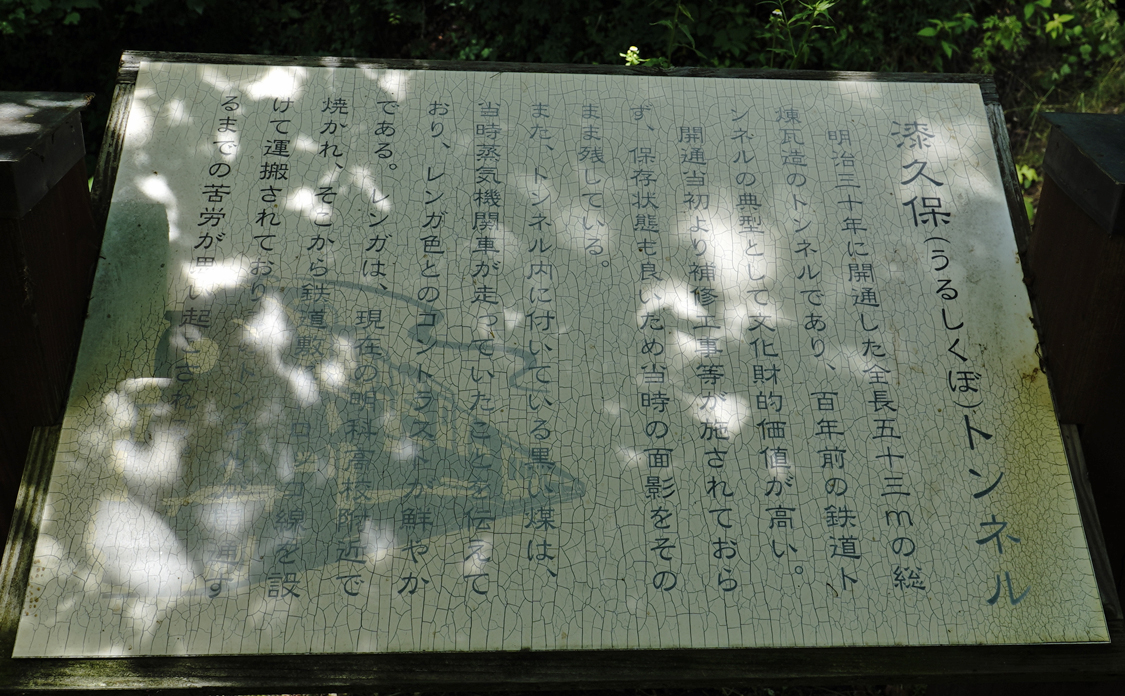 漆久保(うるしくぼ)トンネル
明治三十年に開通した全長五十三mの総
煉瓦造のトンネルであり、百年前の鉄道ト
ンネルの典型として文化財的価値が高い。
開通当初より補修工事等が施されておら
ず、保存状態も良いため当時の面影をその
まま残している。
また、トンネル内に付いている黒い煤は、
当時蒸気機関車が走っていたことを伝えて
おり、レンガ色とのコントラストが鮮やか
である。レンガは、現在の明科高校附近で
焼かれ、そこから鉄道敷
けて運搬されており 線を設
るまでの苦労が思い起こされ